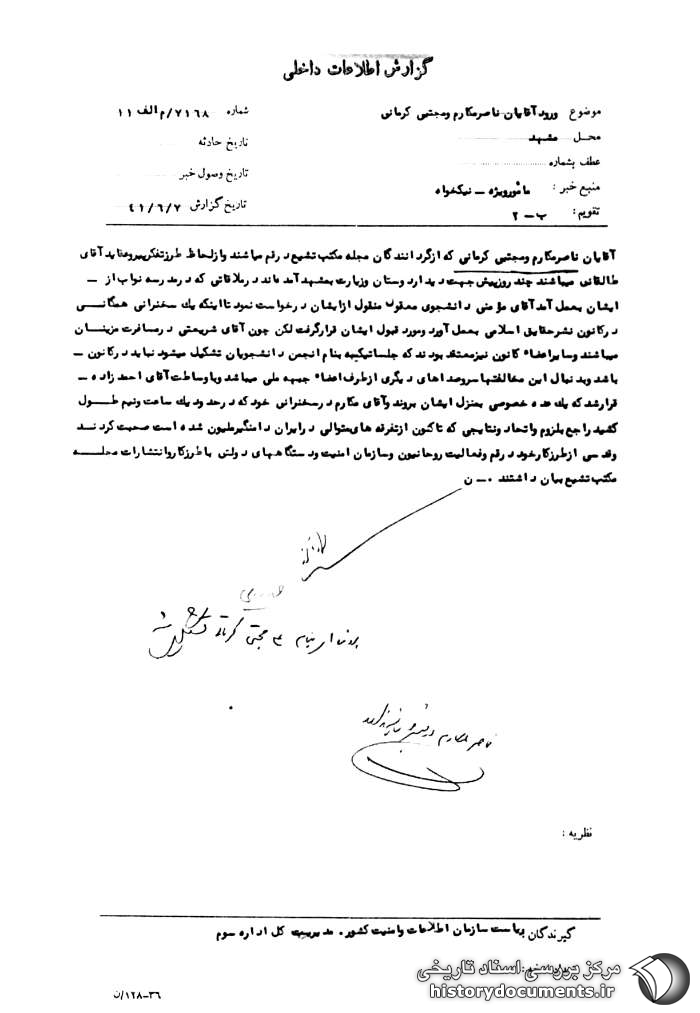 گزارش اطلاعات داخلی
موضوع ورود آقایان ناصر مکارم ومجتبی کرمانی
شماره ۷۱۶۸/م الف ۱۱
محل مشهد
تاریخ حادثه
عطف بشماره
تاریخ وصول خبر
منبع خبر : مأمور ویژه – نیکخواه
تاریخ گزارش ۴۱/۶/۷
تقویم : ب-۲
آقایان ناصر مکارم ومجتبی کرمانی که از گردانندگان مجله مکتب تشیع در قم میباشند واز لحاظ طرز تفکر پیرو عقاید آقای
طالقانی میباشند چند روز پیش جهت دیدار دوستان وزیارت بمشهد آمده اند در ملاقاتی که در مدرسه نواب از –
ایشان بعمل آمد آقای مؤمنی دانشجوی معقول منقول از ایشان درخواست نمود تا اینکه یك سخنرانی همگانی
در کانون نشر حقایق اسلامی بعمل آورد ومورد قبول ایشان قرار گرفت لکن چون آقای شریعتی در مسافرت مزینان
میباشند وسایر اعضاء کانون نیز معتقد بودند که جلساتیکه بنام انجمن دانشجویان تشکیل میشود نباید در کانون –
باشد وبدنبال این مخالفتها سروصداهای دیگری از طرف اعضاء جبهه ملی میباشد وبا وساطت آقای احمدزاده –
قرار شد که یك عده خصوصی بمنزل ایشان بروند وآقای مکارم در سخنرانی خود که در حدود یك ساعت ونیم طول
کشید راجع بلزوم واتحاد ونتایجی که تاکنون از تفرقه های متوالی در ایران دامنگیر ملیون شده است صحبت کردند
وقدسی از طرز کار خود در قم وفعالیت روحانیون وسازمان امنیت ودستگاههای دولتی با طرز کار وانتشارات مجله
مکتب تشیع بیان داشتند . – ن
نظریه :
گیرندگان ریاست سازمان اطلاعات وامنیت کشور . مدیریت کل اداره سوم
مرکز بررسی اسناد تاریخی
historydocuments.ir
۱۲۸-۳۶/ن